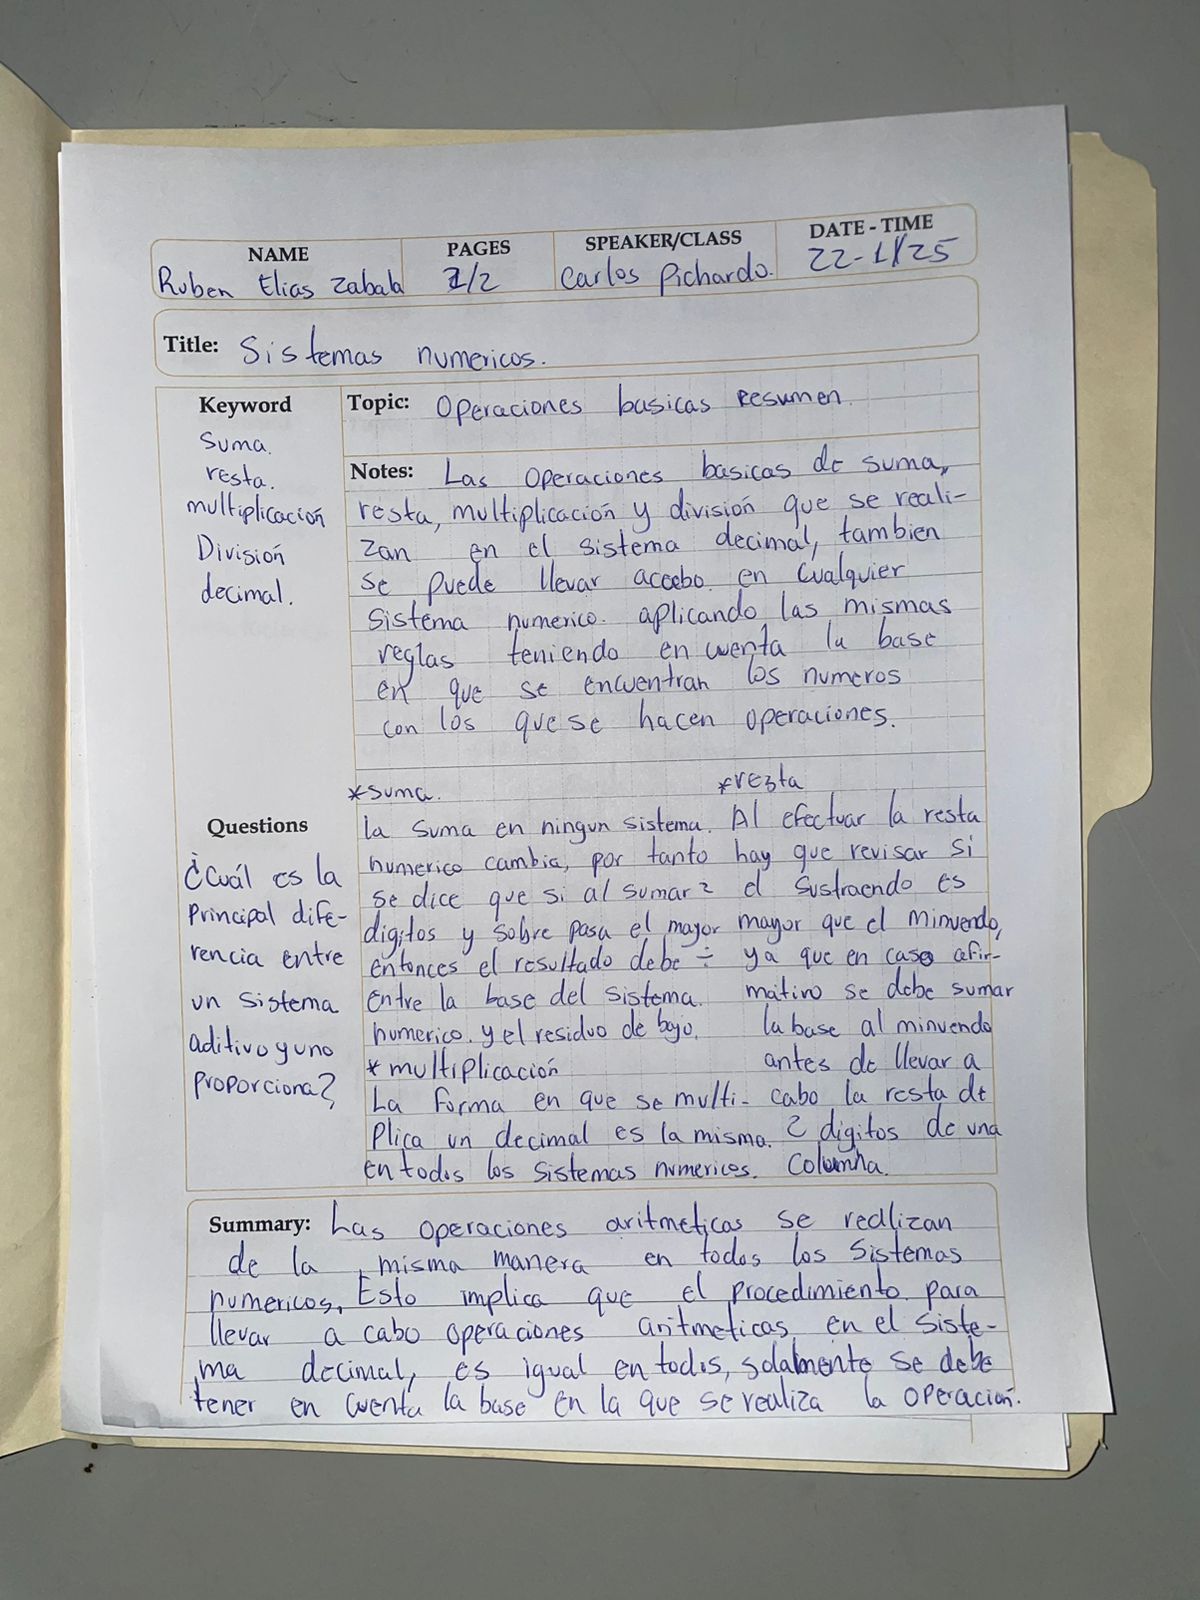 NAME PAGES SPEAKER/CLASS DATE - TIME
Ruben Elias Zabala 1/2 Carlos Pichardo. 22-1/25
Title: Sistemas numericos.
Keyword
Suma.
resta.
multiplicación
División
decimal.
Topic: Operaciones basicas resumen.
Notes: Las operaciones basicas de suma,
resta, multiplicación y división que se reali-
zan en el sistema decimal, tambien
se puede llevar acabo en cualquier
sistema numerico. aplicando las mismas
reglas teniendo en cuenta la base
en que se encuentran los numeros
con los que se hacen operaciones.
Questions
¿Cuál es la
principal dife-
rencia entre
un sistema
aditivo y uno
proporciona?
*suma.
la suma en ningun sistema.
numerico cambia, por tanto
se dice que si al sumar 2
digitos y sobre pasa el mayor
entonces el resultado debe ÷
entre la base del sistema.
numerico. y el residuo de bajo.
*multiplicación
La forma en que se multi-
plica un decimal es la misma.
en todos los sistemas numericos.
*resta
Al efectuar la resta
hay que revisar si
el sustraendo es
mayor que el minuendo,
ya que en caso afir-
mativo se debe sumar
la base al minuendo
antes de llevar a
cabo la resta de
2 digitos de una
columna.
Summary: Las operaciones aritmeticas se realizan
de la misma manera en todos los sistemas
numericos, Esto implica que el procedimiento para
llevar a cabo operaciones aritmeticas en el siste-
ma decimal, es igual en todos, solamente se debe
tener en cuenta la base en la que se realiza la operación.